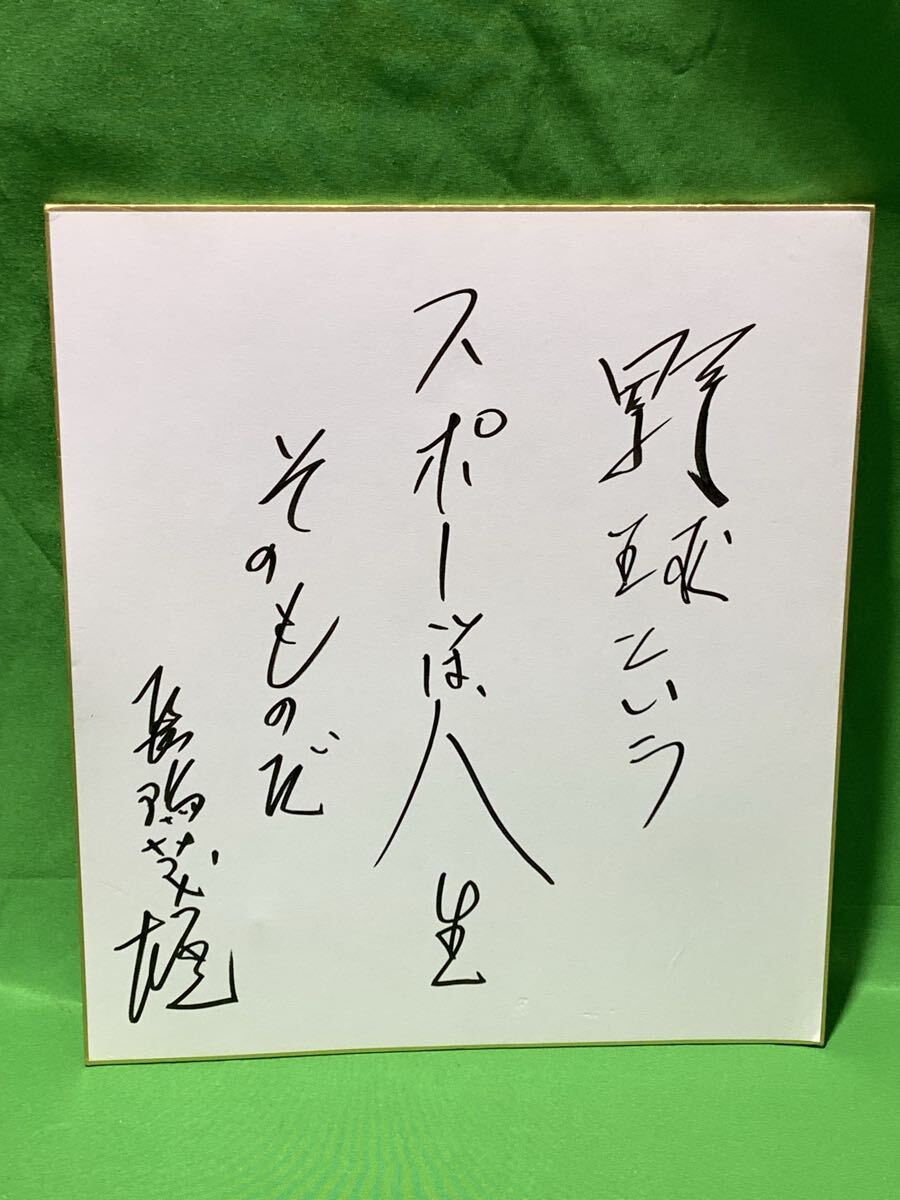 野球という
スポーツは、人生
そのものだ
長嶋茂雄